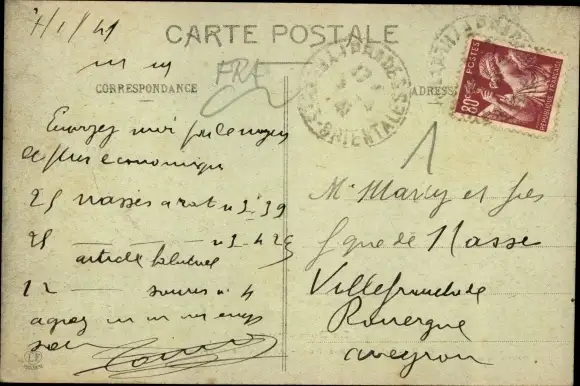 7/1/41
CARTE POSTALE
FRA
CORRESPONDANCE
ADRESSE
PRADES
ES-ORIENTALES
POSTES
80c
REPUBLIQUE FRANÇAISE
1
Envoyez moi par le moyen
le plus economique
25 nasses a rat n 2-39
25 n 2-42
article
12 souris n 4
agreez m m mes
Mr Marcy et fils
fque de Nasse
Villefranche de
Rouergue
aveyron